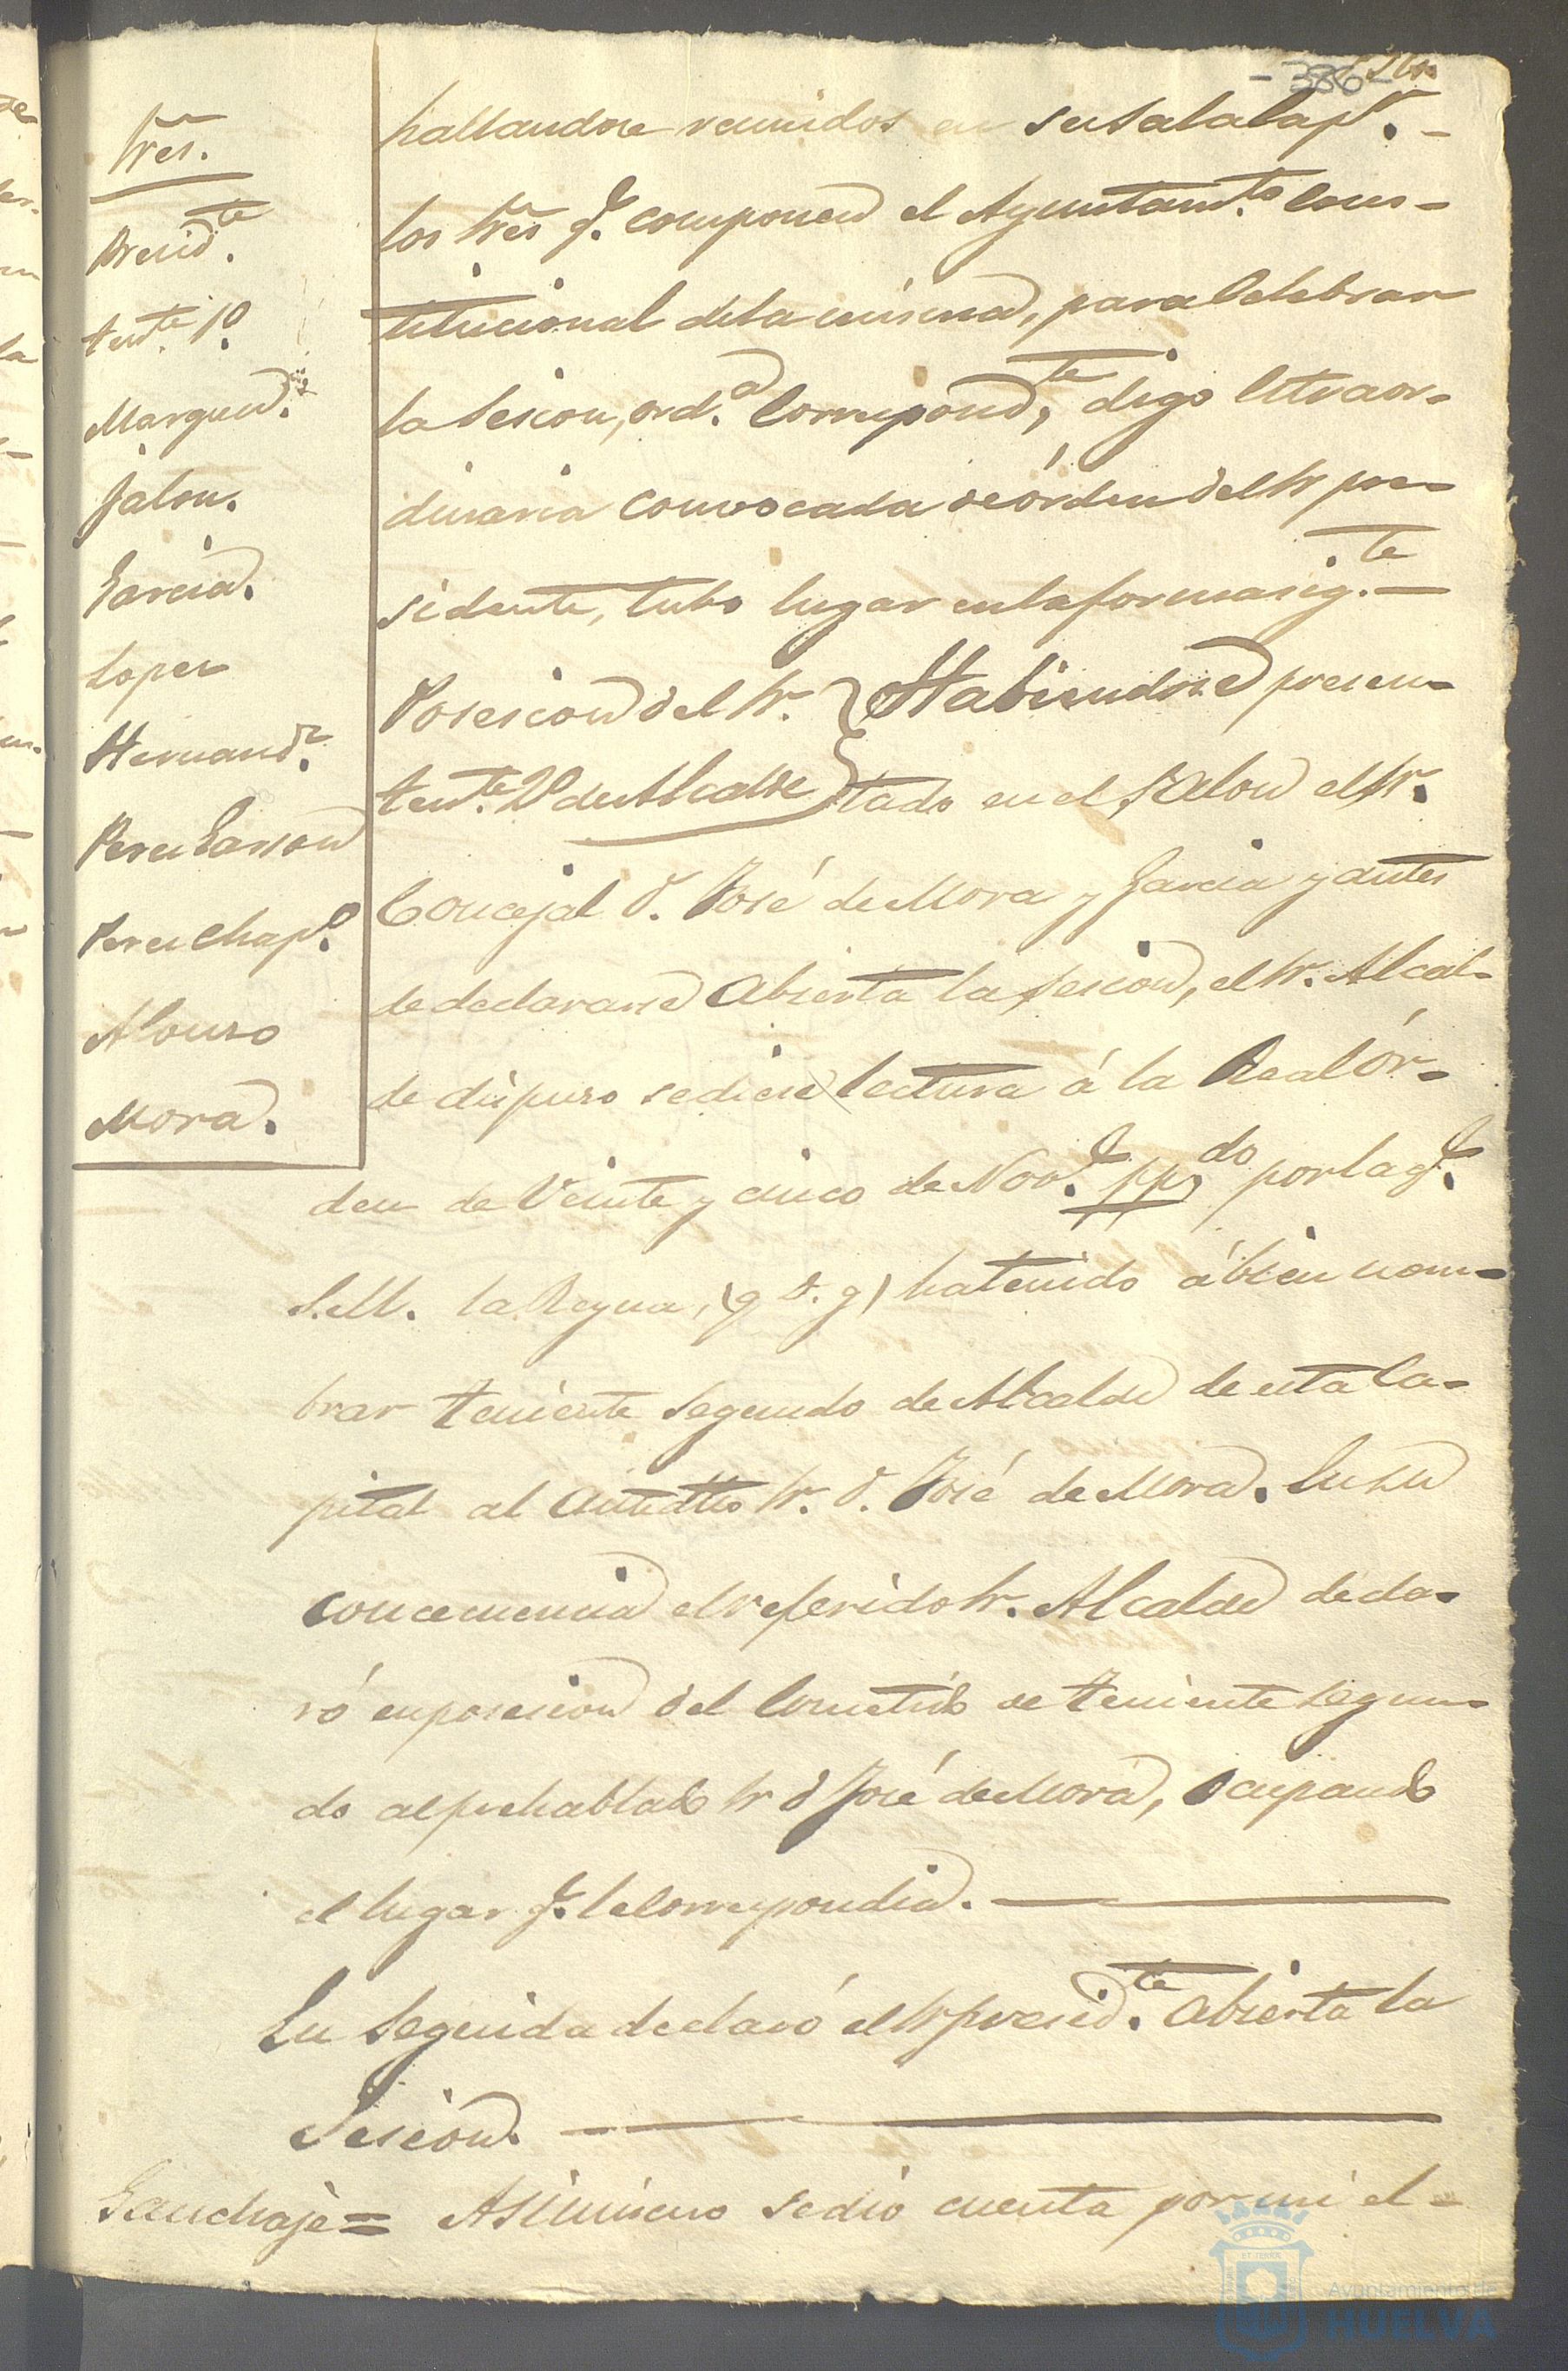 - 386 -
Sres.
Presid.te
tent.e 1º
Marquez
Jalon.
Garcia.
Lopez
Hernand.z
Perez Garzon
Perez Chap.o
Alonso
Mora.
hallandose reunidos en su Sala Cap.r -
los Sres q.e componen el Ayuntam.to Cons-
titucional de la misma, para Celebrar
la Sesion, ord.a Correspond.te, digo Extraor-
dinaria convocada de órden del Sr pre-
sidente, tubo lugar en la forma sig.te —
Posesion del Sr.
tent.e 2º de Alcalde
Habiendose presen-
tado en el Salon el Sr.
Concejal D. José de Mora y Garcia y antes
de declararse Abierta la Sesion, el Sr. Alcal-
de dispuso se diese lectura á la Real ór-
den de Veinte y cinco de Nov.e pp.do por la q.e
S.M. la Reyna, (q D. g) ha tenido á bien nom-
brar teniente Segundo de Alcalde de esta Ca-
pital al Antedho Sr. D. José de Mora. En su
concecuencia el referido Sr. Alcalde decla-
ró en posesion del Cometido de teniente segun-
do al prehablado Sr D José de Mora, Ocupando
el lugar q.e le Correspondia. —
En Seguida declaró el Sr presid.te Abierta la
Sesion. —
Ganchaje = Asimismo se dió cuenta por mi el -
Ayuntamiento de
HUELVA